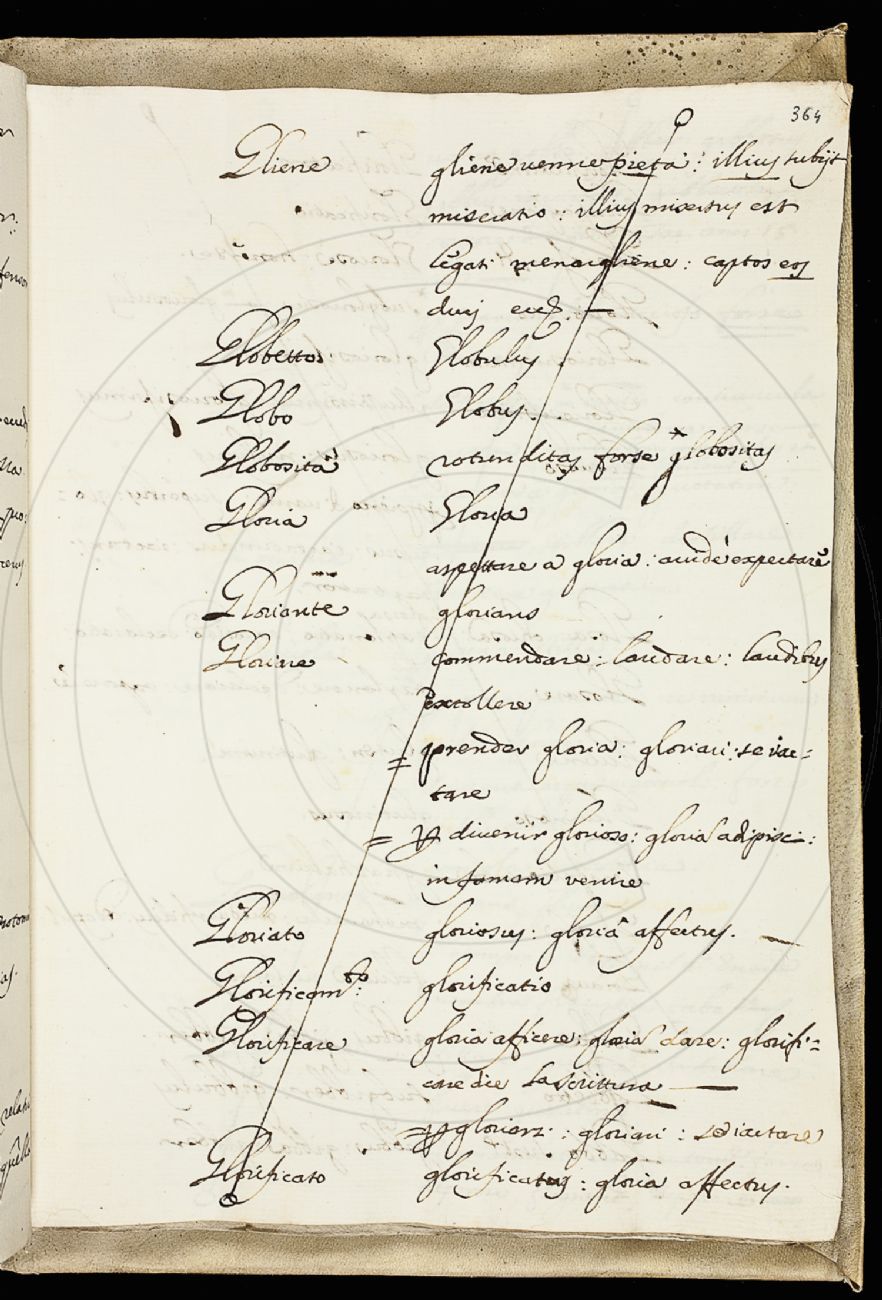 364
Gliene gliene venne pietà: illius subijt
miseratio: illius misertus est
legati menargliene: captos eos
Globetto Globulus
Globo Globus
Globosità rotunditas forse globositas
Gloria Gloria
aspettare a gloria: avidè expectare
Gloriante glorians
Gloriare commendare: laudare: laudibus
extollere
= prender gloria: gloriari: se iac=
tare
= p divenir glorioso: gloriã adipisci:
in famam venire
Gloriato gloriosus: gloriâ affectus. —
Glorificam.to: glorificatio
Glorificare gloria afficere: gloriã dare: glorifi=
care dice la scrittura —
= p gloriarz: gloriari: se iactare
Glorificato glorificatus: gloria affectus.